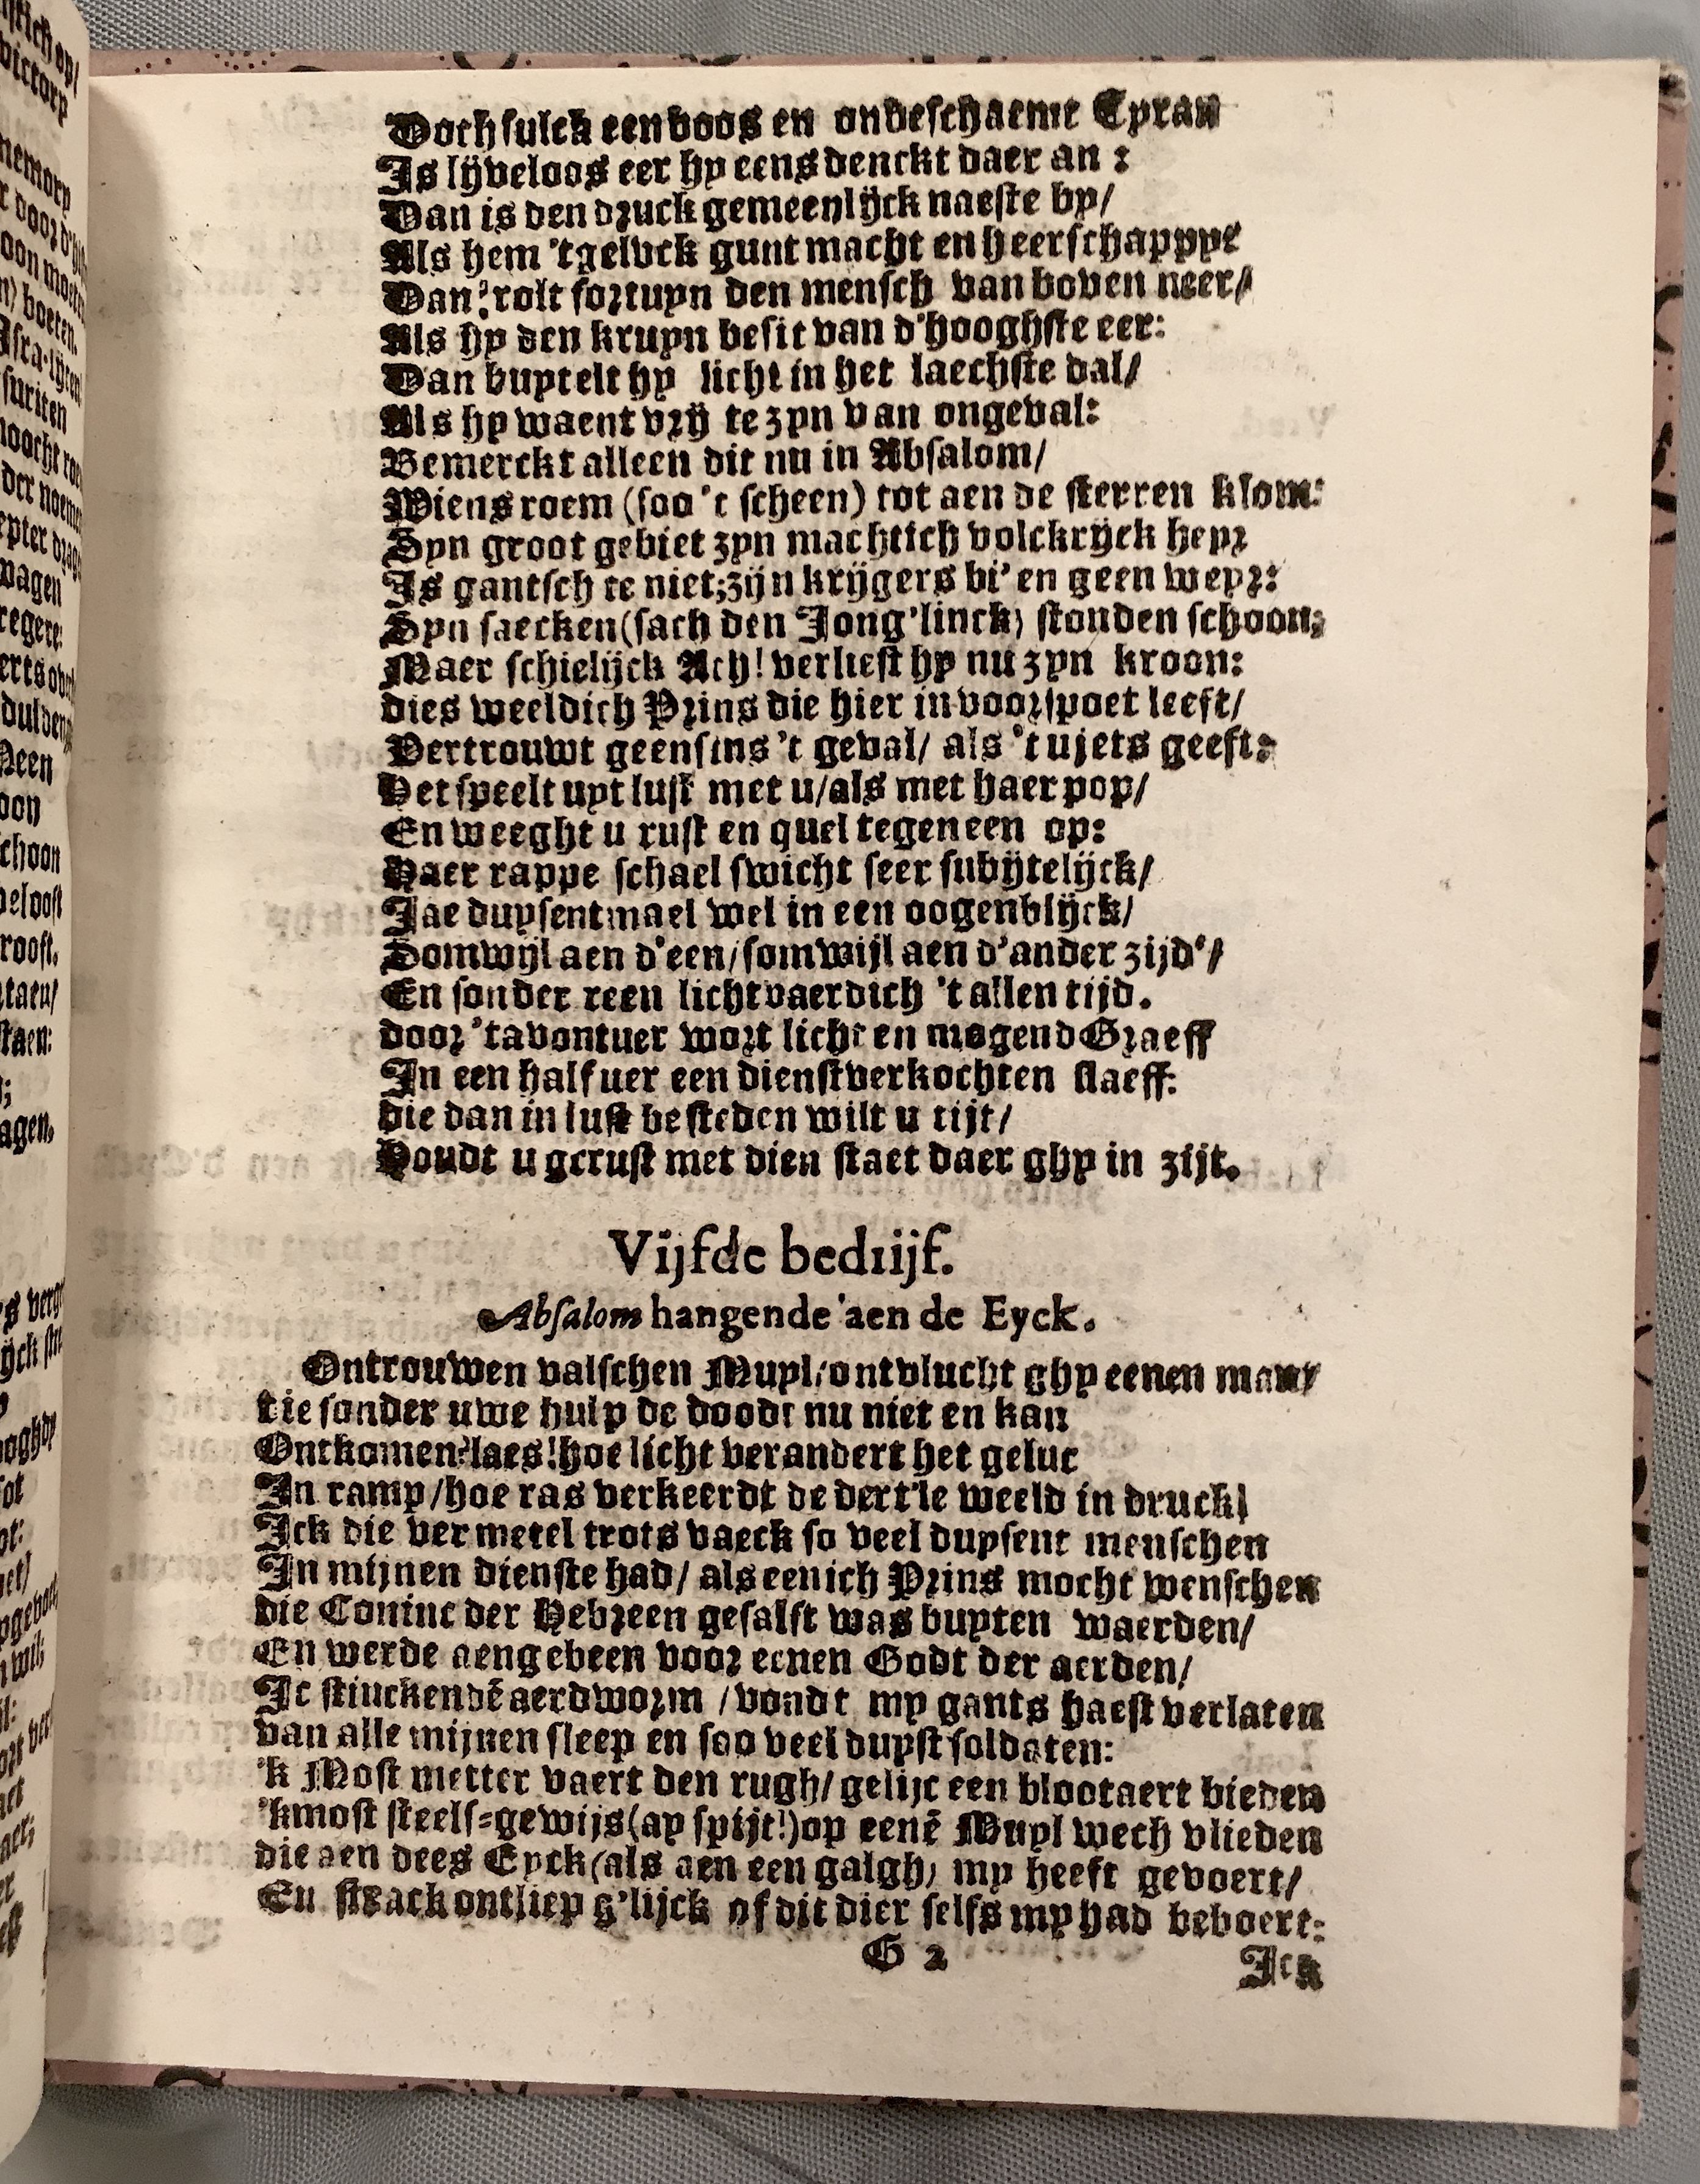 Doch sulck een boos en onbeschaemt Tyran
Is lijveloos eer hy eens denckt daer an :
Dan is den druck gemeenlijck naeste by/
Als hem 't geluck gunt macht en heerschappye
Dan: rolt fortuyn den mensch van boven neer/
Als hy den kruyn besit van d'hooghste eer:
Dan buytelt hy licht in het laechste dal/
Als hy waent vrij te zyn van ongeval:
Bemerckt alleen dit nu in Absalom/
Wiens roem (soo 't scheen) tot aen de sterren klom:
Syn groot gebiet zyn machtich volckrijck heyr
Is gantsch te niet; zijn krijgers bi'en geen weyr:
Syn saecken (sach den Jong'linck) stonden schoon;
Maer schielijck Ach! verliest hy nu zyn kroon:
dies weeldich Prins die hier in voorspoet leeft/
Vertrouwt geensins 't geval/ als 't ujets geeft:
Het speelt uyt lust met u/als met haer pop/
En weeght u rust en quel tegen een op:
Haer rappe schael swicht seer subijtelijck/
Jae duysentmael wel in een oogenblijck/
Somwijl aen d'een/somwijl aen d'ander zijd'/
En sonder reen lichtvaerdich 't allen tijd.
door 't avontuer wort licht en mogend Graeff
In een half uer een dienstverkochten slaeff:
die dan in lust besteden wilt u tijt/
Houdt u gerust met dien staet daer ghy in zijt.
Vijfde bedrijf.
Absalom hangende aen de Eyck.
Ontrouwen valschen Muyl/ontvlucht ghy eenen man/
die sonder uwe hulp de doodt nu niet en kan
Ontkomen? laes! hoe licht verandert het geluc
In ramp/hoe ras verkeerdt de dert'le weeld in druck!
Ick die vermetel trots vaeck so veel duysent menschen
In mijnen dienste had/ als eenich Prins mocht wenschen
die Coninc der Hebreen gesalft was buyten waerden/
En werde aengebeen voor eenen Godt der aerden/
Ic stinckendē aerdworm /vondt my gants haest verlaten
van alle mijnen sleep en soo veel duyst soldaten:
'k Most metter vaert den rugh/ gelijc een blootaert bieden
'kmost steels-gewijs (ay spijt!) op eenē Muyl wech vlieden
die aen dees Eyck (als aen een galgh) my heeft gevoert/
En strack ontliep g'lijck of dit dier selfs my had beboert:
G 2
Ick